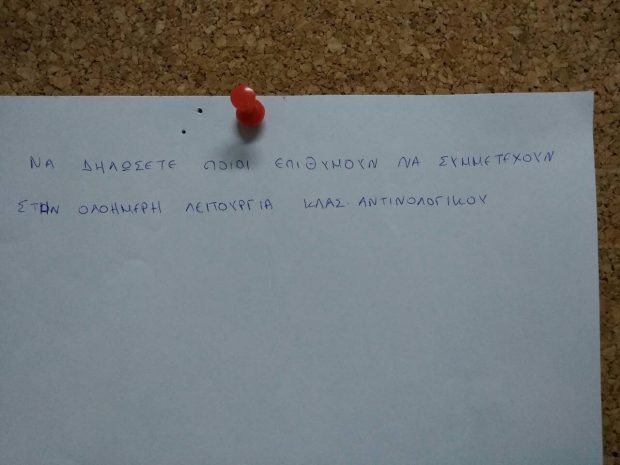 ΝΑ ΔΗΛΩΣΕΤΕ ΠΟΙΟΙ ΕΠΙΘΥΜΟΥΝ ΝΑ ΣΥΜΜΕΤΕΧΟΥΝ
ΣΤΗΝ ΟΛΟΗΜΕΡΗ ΛΕΙΤΟΥΡΓΙΑ ΚΛΑΣ. ΑΝΤΙΝΟΛΟΓΙΚΟΥ